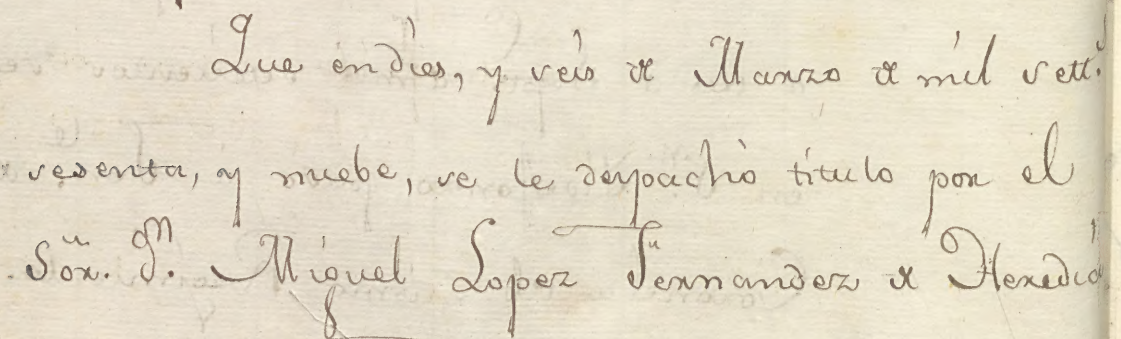 Que en dies, y seis de Marzo de mil sett.s
sesenta, y nuebe, se le despachó titulo por el
Sõr. Dn. Miguel Lopez Fernandez de Heredia